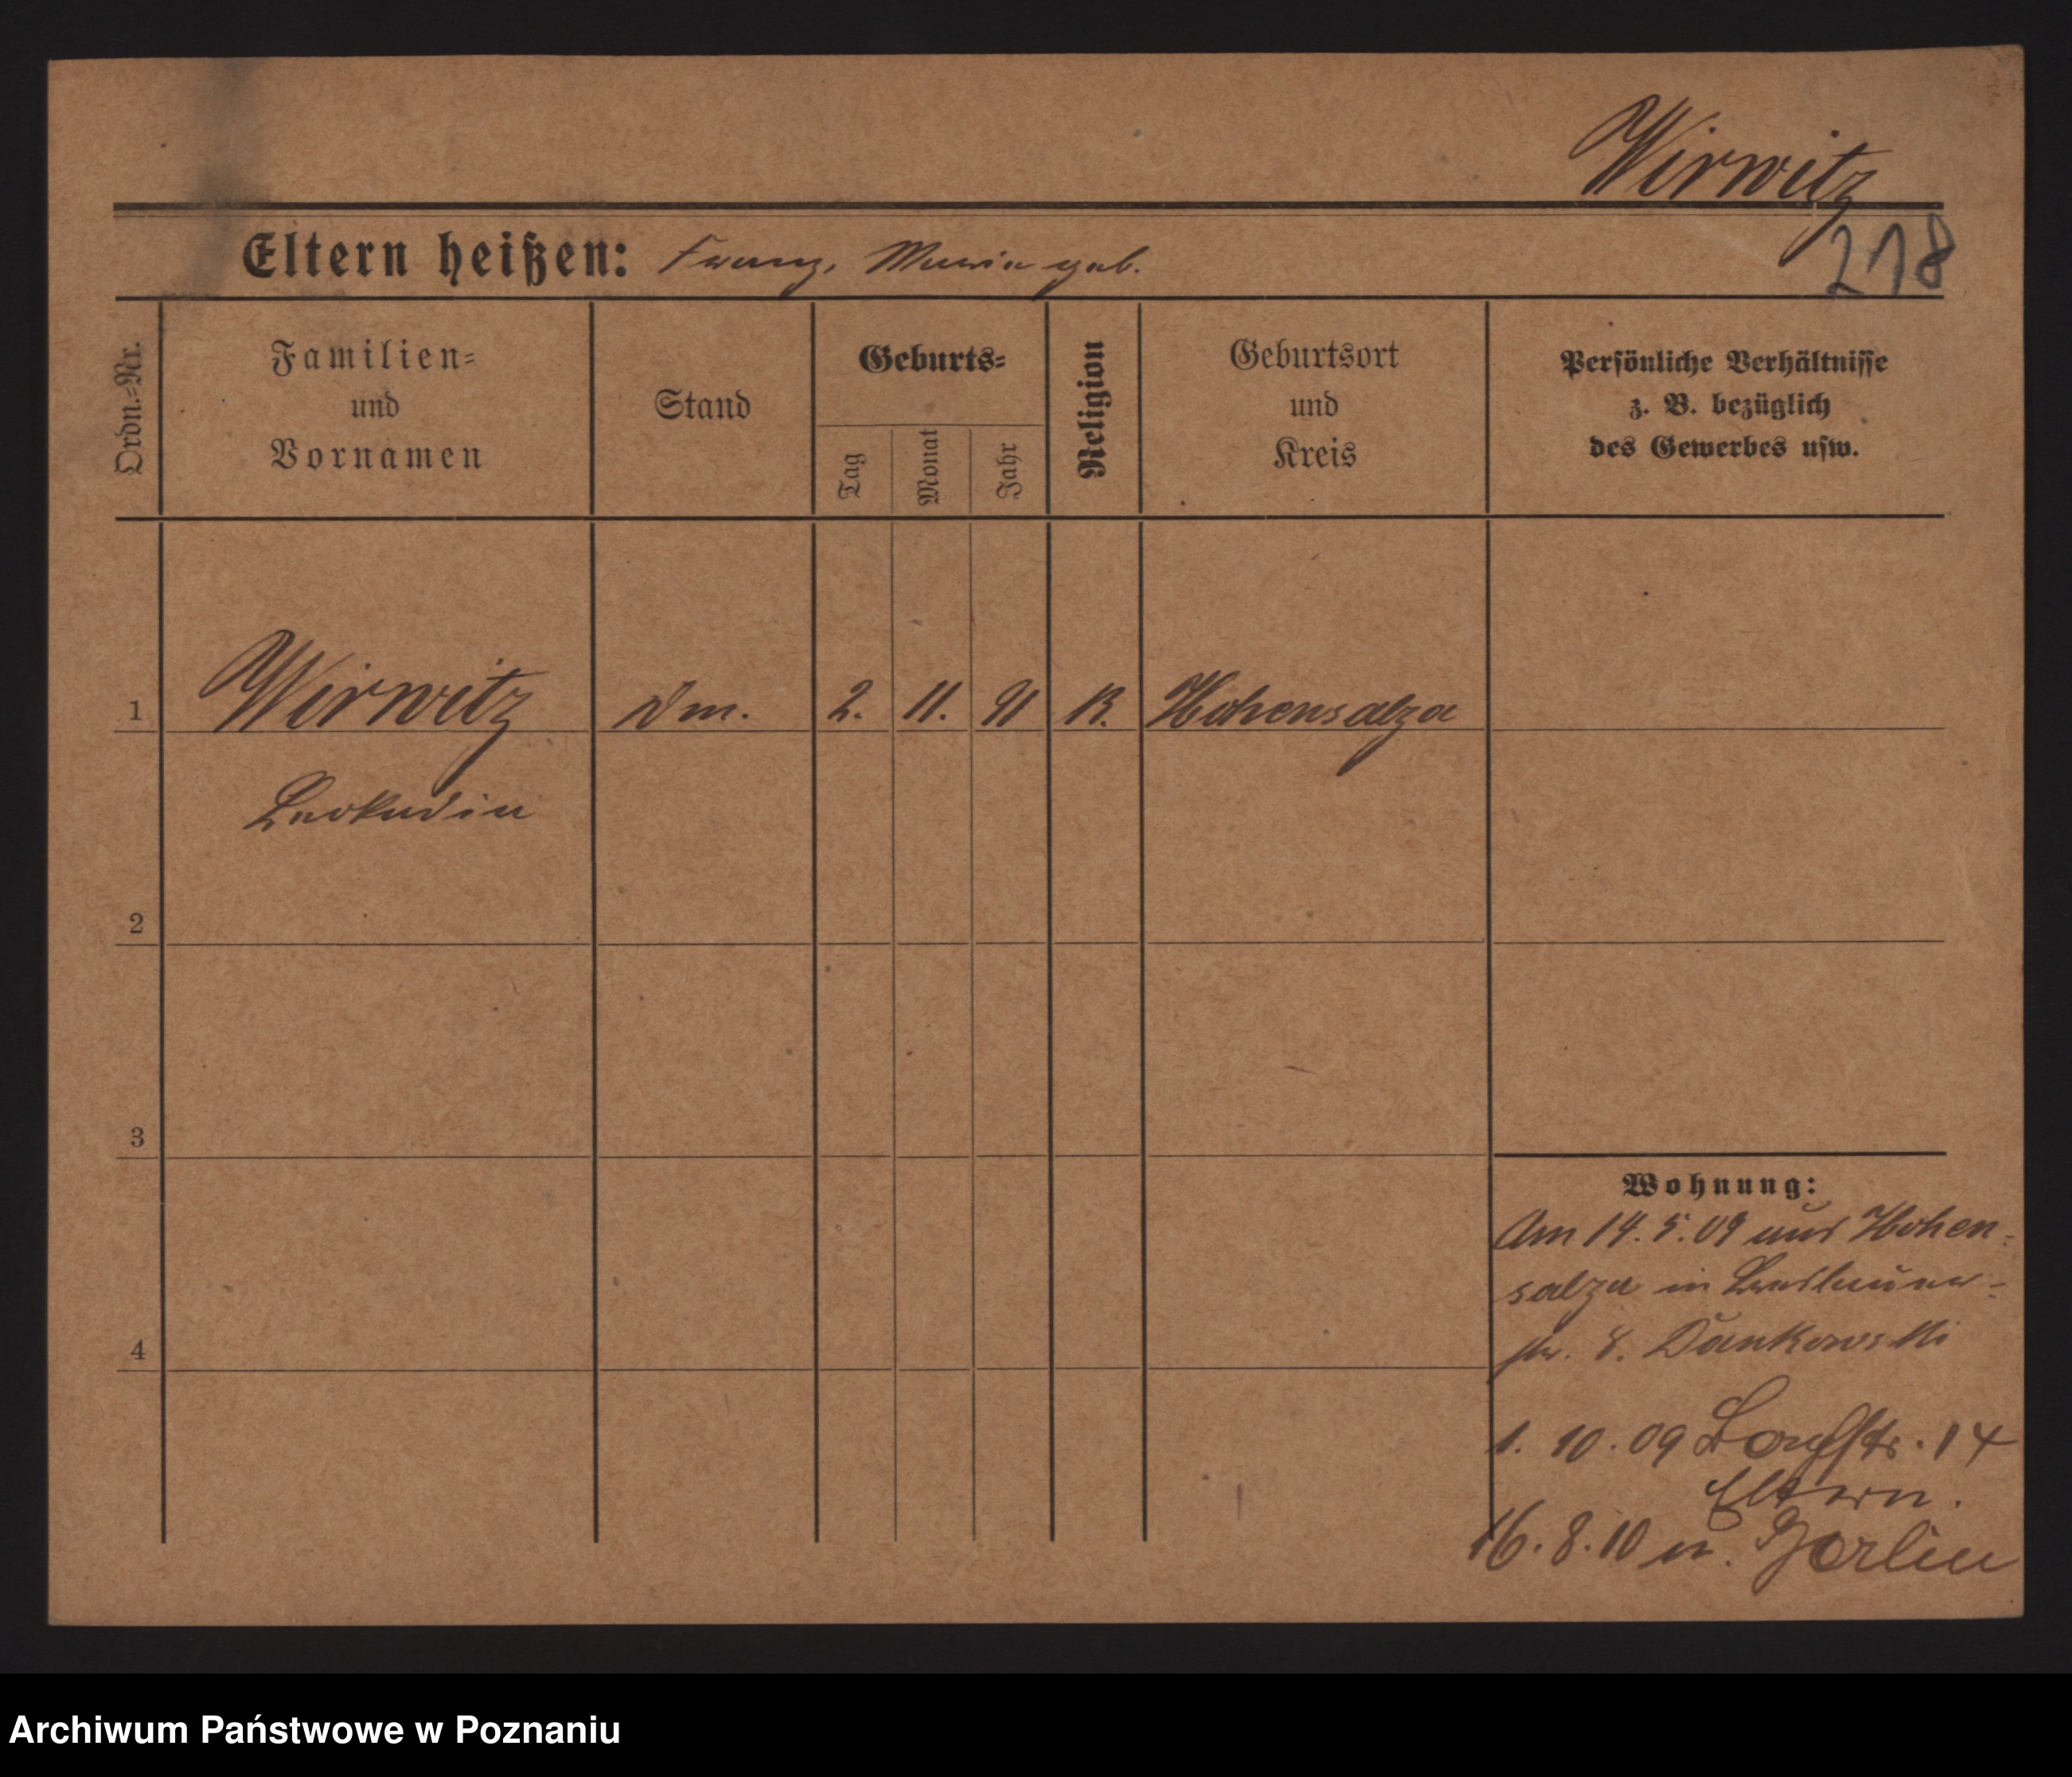 Wirwitz
218
Eltern heißen: Franz, Maria geb.
Ordn.=Nr.
Familien=
und
Vornamen
Stand
Geburts=
Tag
Monat
Jahr
Religion
Geburtsort
und
Kreis
Persönliche Verhältnisse
z. B. bezüglich
des Gewerbes usw.
1 Wirwitz Dm. 2. 11. 91 K. Hohensalza
Leokadia
2
3
4
Wohnung:
Am 14.5.09 aus Hohen-
salza in
str. 8. Dankowski
1. 10. 09 14
Eltern.
16.8.10 n. Berlin
Archiwum Państwowe w Poznaniu